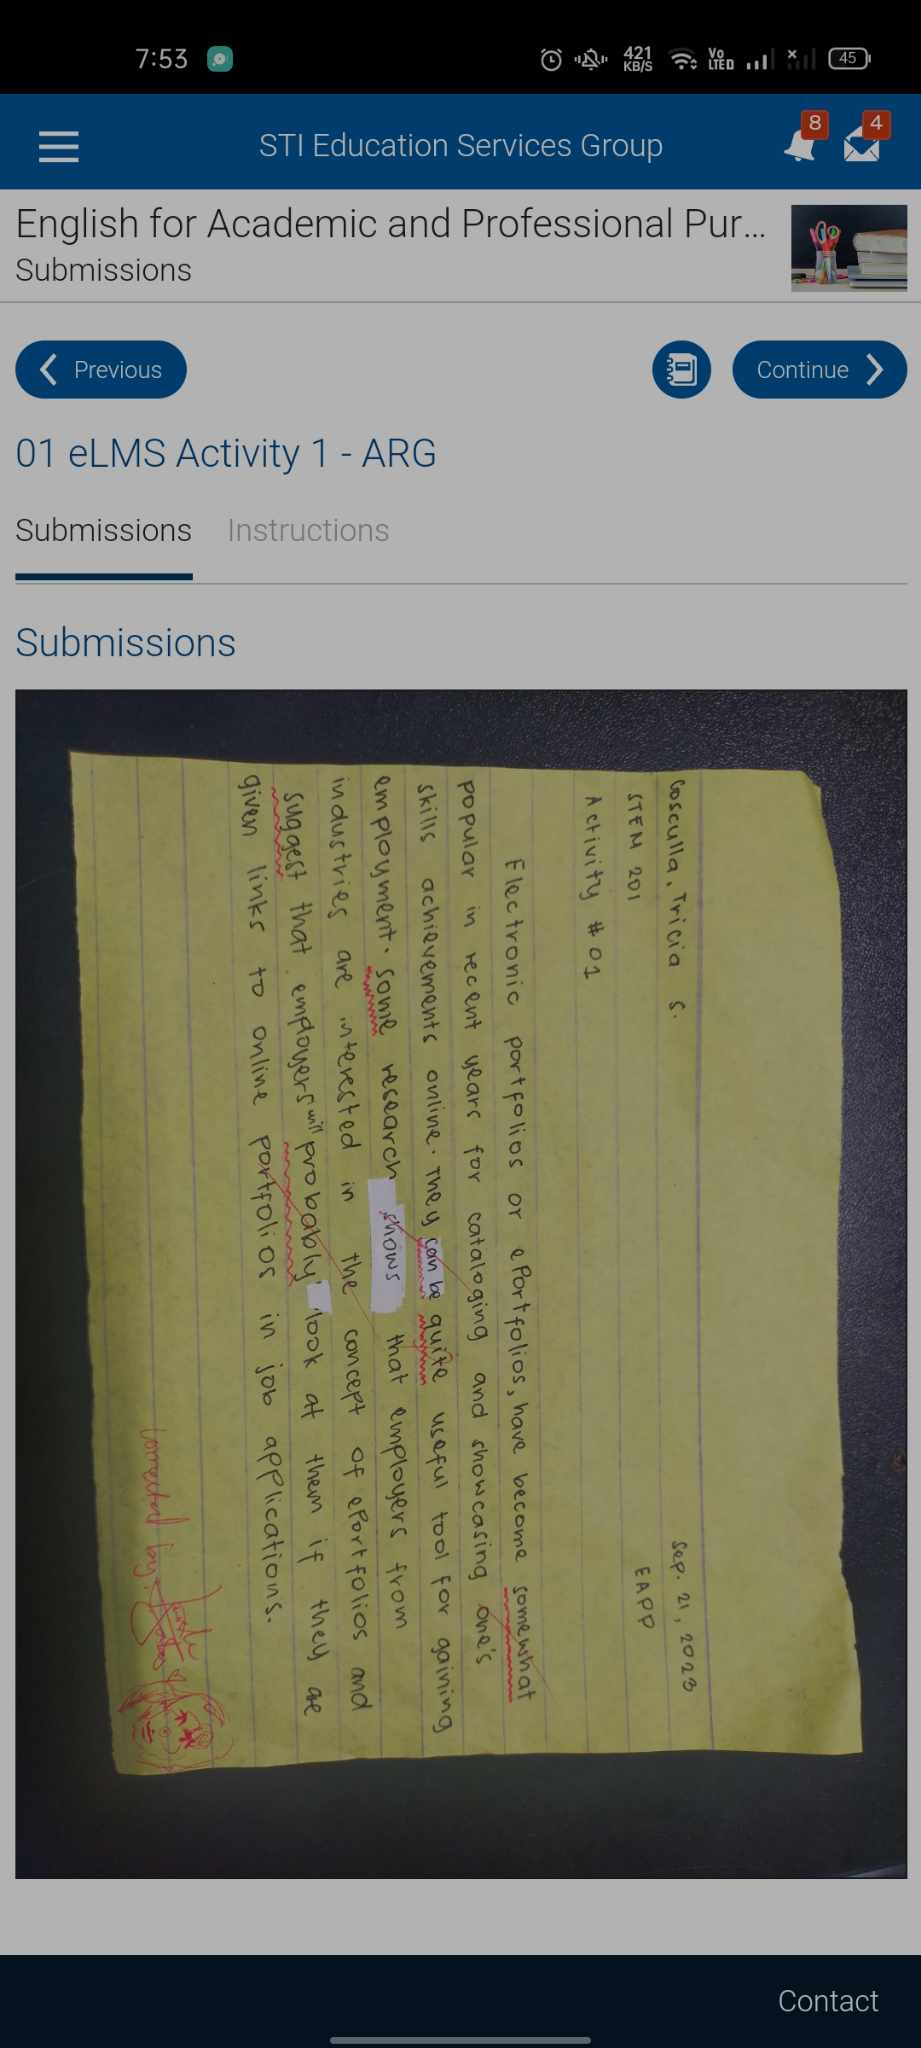 7:53
421
KB/S
Vo
LTED
45
STI Education Services Group
8
4
English for Academic and Professional Pur...
Submissions
Previous
Continue
01 eLMS Activity 1 - ARG
Submissions
Instructions
Submissions
Cosculla, Tricia S.
Sep. 21, 2023
STEM 201
EAPP
Activity # 01
Electronic portfolios or ePortfolios, have become somewhat
popular in recent years for cataloging and showcasing one's
skills achievements online. They can be quite useful tool for gaining
employment. some research shows that employers from
industries are interested in the concept of ePortfolios and
suggest that employers will probably look at them if they are
given links to online portfolios in job applications.
Corrected by:
Contact